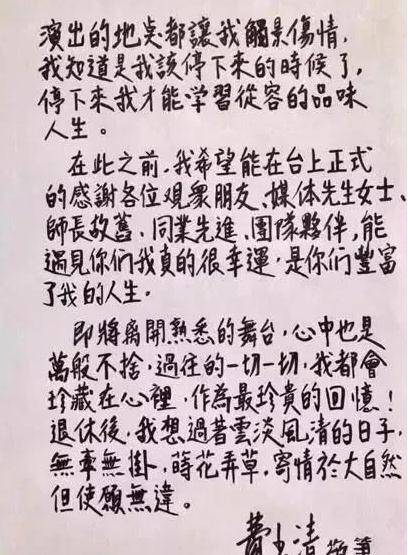 演出的地点都讓我觸景傷情，
我知道是我該停下來的時候了，
停下來我才能学習從容的品味
人生。
在此之前，我希望能在台上正式
的感謝各位観衆朋友、媒体先生女士、
師長故舊、同業先進、團隊夥伴，能
遇見你們我真的很幸運，是你們豐富
了我的人生。
即將离開熟悉的舞台，心中也是
萬般不捨，過往的一切一切，我都會
珍藏在心裡，作為最珍貴的回憶！
退休後，我想過著雲淡風清的日子，
無牽無掛，蒔花弄草，寄情於大自然
但使願無違。
費玉清 敬筆